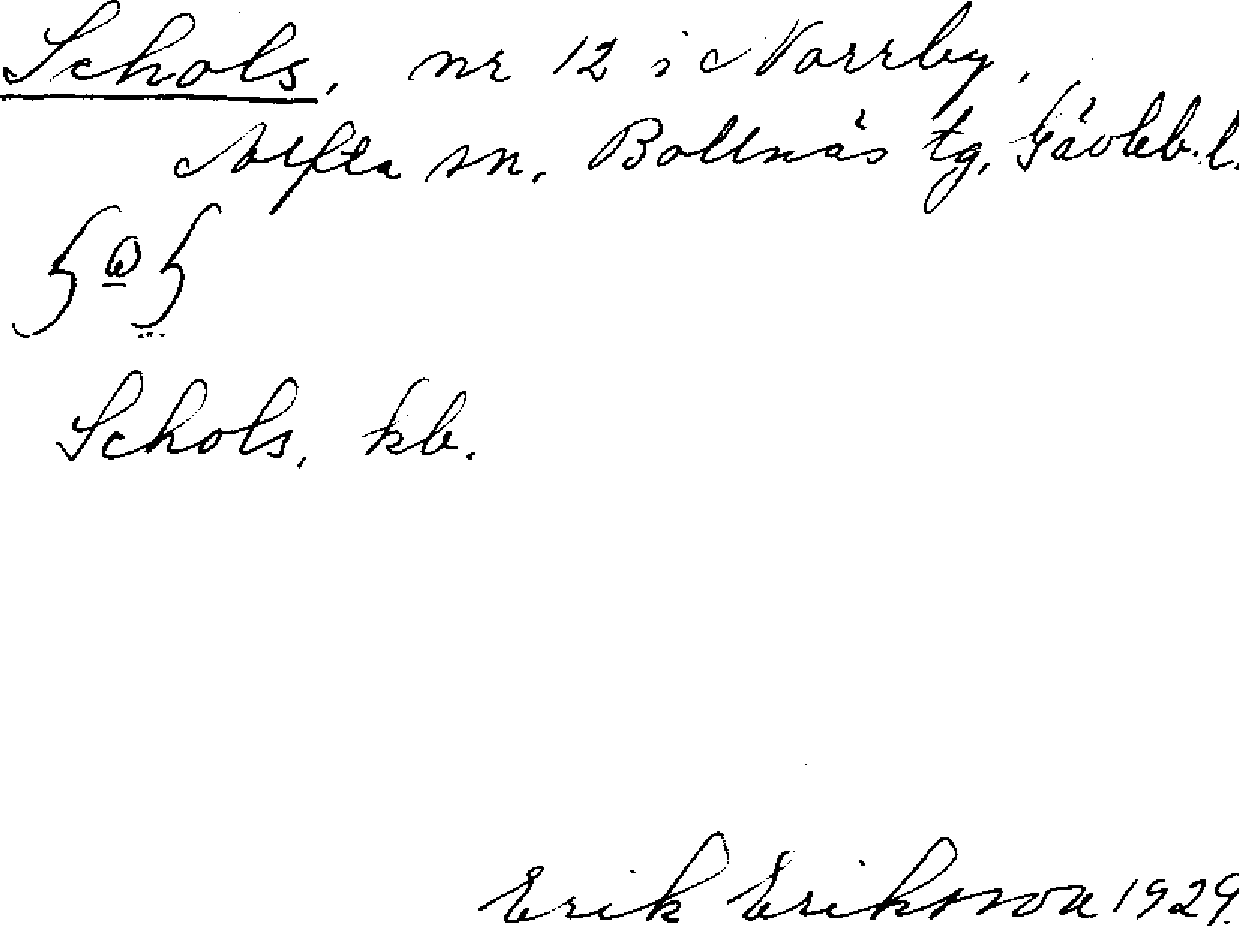 Schols, nr 12 i Norrby,
Alfta sn. Bollnäs tg, Gävleb. l.
Schols, kb.
Erik Eriksson 1929.